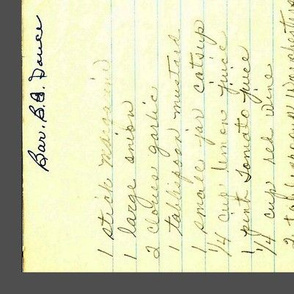 Bar. B.Q. Sauce
1 stick margarine
1 large onion
2 cloves garlic
1 tablespoon mustard
1 small jar catsup
1/4 cup lemon juice
1 pint tomato juice
1/4 cup red wine
2 tablespoons